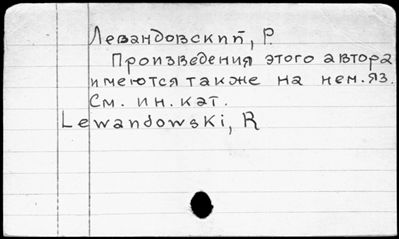 Левандовский, Р.
Произведения этого автора
имеются также на нем.яз.
См. ин. кат.
Lewandowski, R